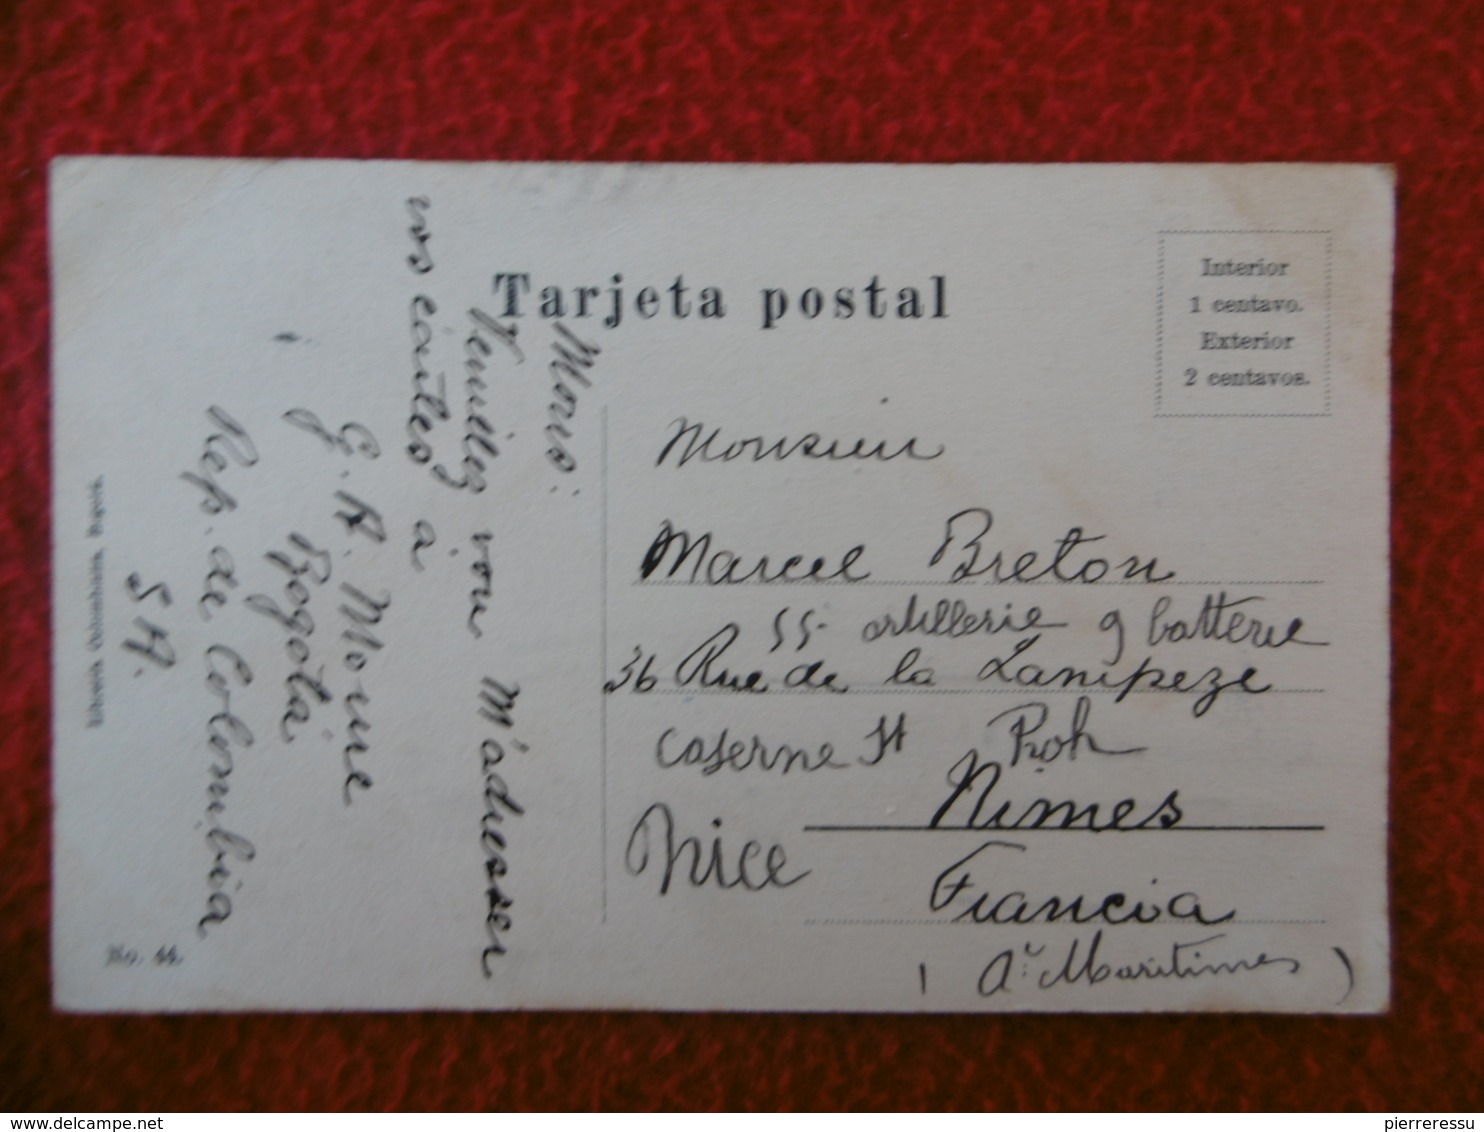 Tarjeta postal
Interior
1 centavo.
Exterior
2 centavos.
Mons:
Veuillez vou M'adresser
vos cartes à
G. A. Moure
Bogotá
Rep. de Colombia
S A.
Librería Colombiana, Bogotá.
No. 44.
Monsieur
Marcel Breton
55- artillerie 9 batterie
36 Rue de la Lampeze
Caserne St Roh
Nimes
Nice
Francia
( A.s Maritimes )
delcampe.net
pierreressu